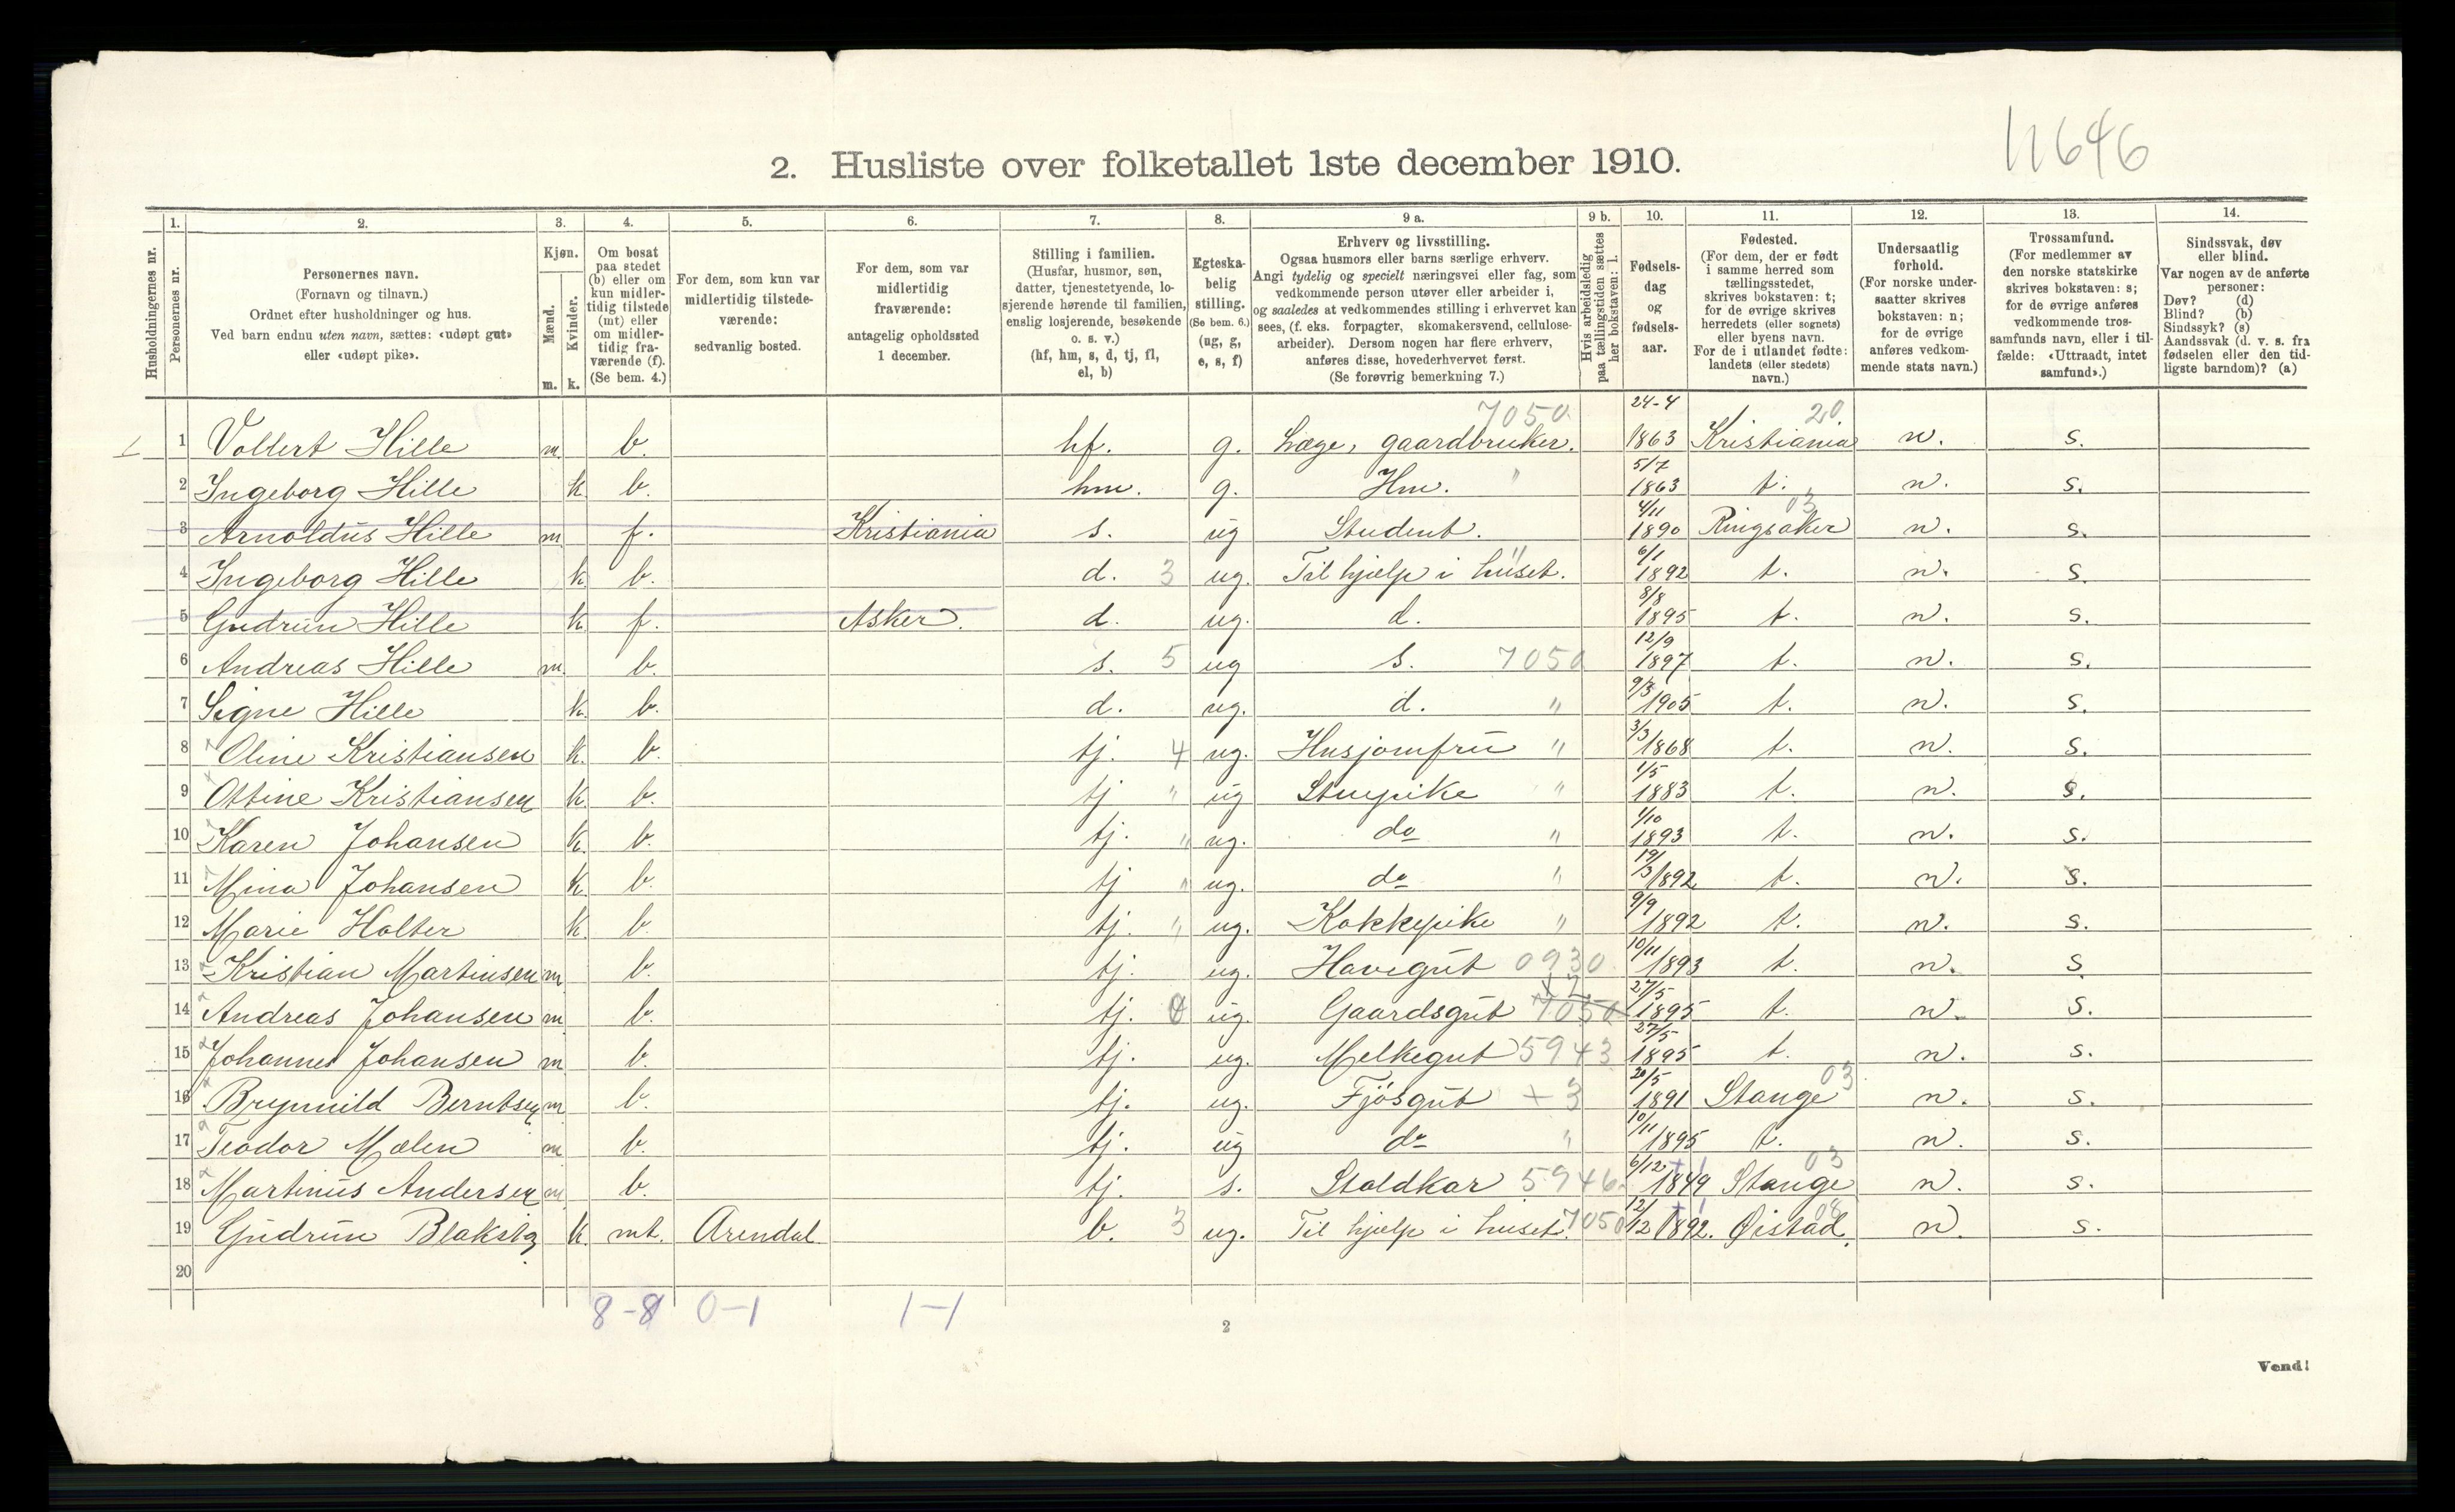 11646
2. Husliste over folketallet 1ste december 1910.
Husholdningernes nr.
1. Personernes nr.
2. Personernes navn. (Fornavn og tilnavn.) Ordnet efter husholdninger og hus. Ved barn endnu uten navn, sættes: «udøpt gut» eller «udøpt pike».
3. Kjøn. Mænd. m. Kvinder. k.
4. Om bosat paa stedet (b) eller om kun midlertidig tilstede (mt) eller om midlertidig fraværende (f). (Se bem. 4.)
5. For dem, som kun var midlertidig tilstedeværende: sedvanlig bosted.
6. For dem, som var midlertidig fraværende: antagelig opholdssted 1 december.
7. Stilling i familien. (Husfar, husmor, søn, datter, tjenestetyende, losjerende hørende til familien, enslig losjerende, besøkende o. s. v.) (hf, hm, s, d, tj, fl, el, b)
8. Egteskabelig stilling. (Se bem. 6.) (ug, g, e, s, f)
9 a. Erhverv og livsstilling. Ogsaa husmors eller barns særlige erhverv. Angi tydelig og specielt næringsvei eller fag, som vedkommende person utøver eller arbeider i, og saaledes at vedkommendes stilling i erhvervet kan sees, (f. eks. forpagter, skomakersvend, cellulose-arbeider). Dersom nogen har flere erhverv, anføres disse, hovederhvervet først. (Se forøvrig bemerkning 7.)
9 b. Hvis arbeidsledig paa tællingstiden sættes her bokstaven: l.
10. Fødselsdag og fødselsaar.
11. Fødested. (For dem, der er født i samme herred som tællingsstedet, skrives bokstaven: t; for de øvrige skrives herredets (eller sognets) eller byens navn. For de i utlandet fødte: landets (eller stedets) navn.)
12. Undersaatlig forhold. (For norske undersaatter skrives bokstaven: n; for de øvrige anføres vedkommende stats navn.)
13. Trossamfund. (For medlemmer av den norske statskirke skrives bokstaven: s; for de øvrige anføres vedkommende trossamfunds navn, eller i tilfælde: «Uttraadt, intet samfund».)
14. Sindssvak, døv eller blind. Var nogen av de anførte personer: Døv? (d) Blind? (b) Sindssyk? (s) Aandssvak (d. v. s. fra fødselen eller den tidligste barndom)? (a)
1 1 Vollert Hille m b. hf. g. Læge, gaardbruker. 7050 24-4 1863 Kristiania 20 n. s.
2 Ingeborg Hille k b. hm. g. Hm. " 5/7 1863 t. n. s.
3 Arnoldus Hille m f. Kristiania s. ug Student. 4/11 1890 Ringsaker 03 n. s.
4 Ingeborg Hille k b. d. 3 ug. Til hjælp i huset. " 6/1 1892 t. n. s.
5 Gudrun Hille k f. Asker. d. ug. d. 8/8 1895 t. n. s.
6 Andreas Hille m. b. s. 5 ug s. 7050 12/9 1897 t. n. s.
7 Signe Hille k b. d. ug. d. " 9/3 1905 t. n. s.
8 Oline Kristiansen k. b. tj. 4 ug. Husjomfru " 3/3 1868 t. n. s.
9 Ottine Kristiansen k. b. tj " ug Stuepike " 1/5 1883 t. n. s.
10 Karen Johansen k. b. tj. " ug. do " 1/10 1893 t. n. s.
11 Mina Johansen k b. tj " ug. do " 19/3 1892 t. n. s.
12 Marie Holter k b. tj. " ug. Kokkepike " 9/9 1892 t. n. s.
13 Kristian Martinsen m b. tj. ug. Havegut 0930 10/11 1893 t. n. s
14 Andreas Johansen m b. tj. ug. Gaardsgut + 2 7050 27/5 1895 t. n. s.
15 Johannes Johansen m b. tj. ug. Melkegut 5943 27/5 1895 t. n. s.
16 Brynnild Berntsen m b. tj. ug. Fjøsgut + 3 20/5 1891 Stange 03 n. s.
17 Teodor Mælen m b. tj. ug do " 10/11 1895 t. n. s.
18 Martinus Andersen m b. tj. s. Staldkar 5946 6/12 1849 Stange 03 n. s.
19 Gudrun Blakstg k mt. Arendal b. 3 ug. Til hjælp i huset. 7050 12/12 1892. Øistad. 08 n. s.
20
8-8 0-1 1-1
2
Vend!